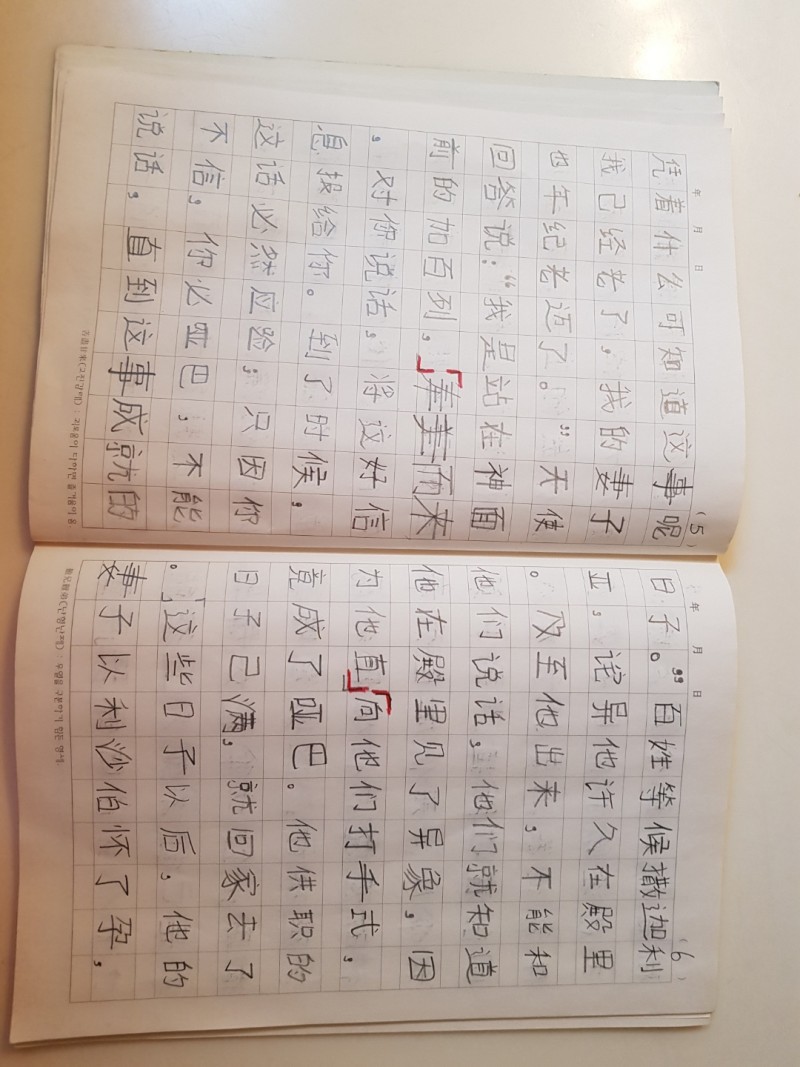 年 月 日
(5)
凭着什么可知道这事呢
我已经老了,我的妻子
也年纪老迈了。”天使
回答说:“我是站在神面
前的加百列,「奉差而来
,对你说话,将这好信
息报给你。到了时候,
这话必然应验;只因你
不信,你必哑巴,不能
说话,直到这事成就的
苦盡甘來(고진감래) : 괴로움이 다하면 즐거움이 옴.
年 月 日
(6)
日子。”百姓等候撒迦利
亚,诧异他许久在殿里
。及至他出来,不能和
他们说话,他们就知道
他在殿里见了异象,因
为他直」「向他们打手式,
竟成了哑巴。他供职的
日子已满,就回家去了
。」这些日子以后,他的
妻子以利沙伯怀了孕,